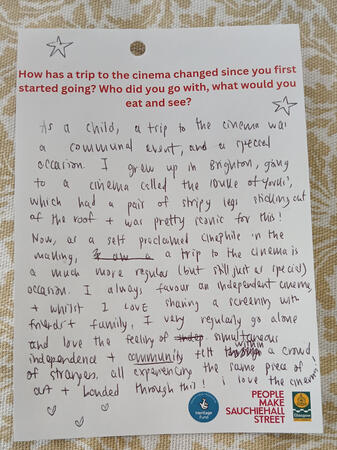 How has a trip to the cinema changed since you first
started going? Who did you go with, what would you
eat and see?
As a child, a trip to the cinema was
a communal event, and a special
occasion. I grew up in Brighton, going
to a cinema called the 'Duke of Yorks',
which had a pair of stripy legs sticking out
of the roof + was pretty iconic for this!
Now, as a self proclaimed cinephile in the
making, I am a a trip to the cinema is
a much more regular (but still just as special)
occasion. I always favour an independent cinema
+ whilst I LOVE sharing a screening with
friends + family, I very regularly go alone
and love the feeling of indep simultaneous
independence + community felt through within a crowd
of strangers, all experiencing the same piece of
art + bonded through this! i love the cinema!
Heritage
Fund
PEOPLE
MAKE
SAUCHIEHALL
STREET